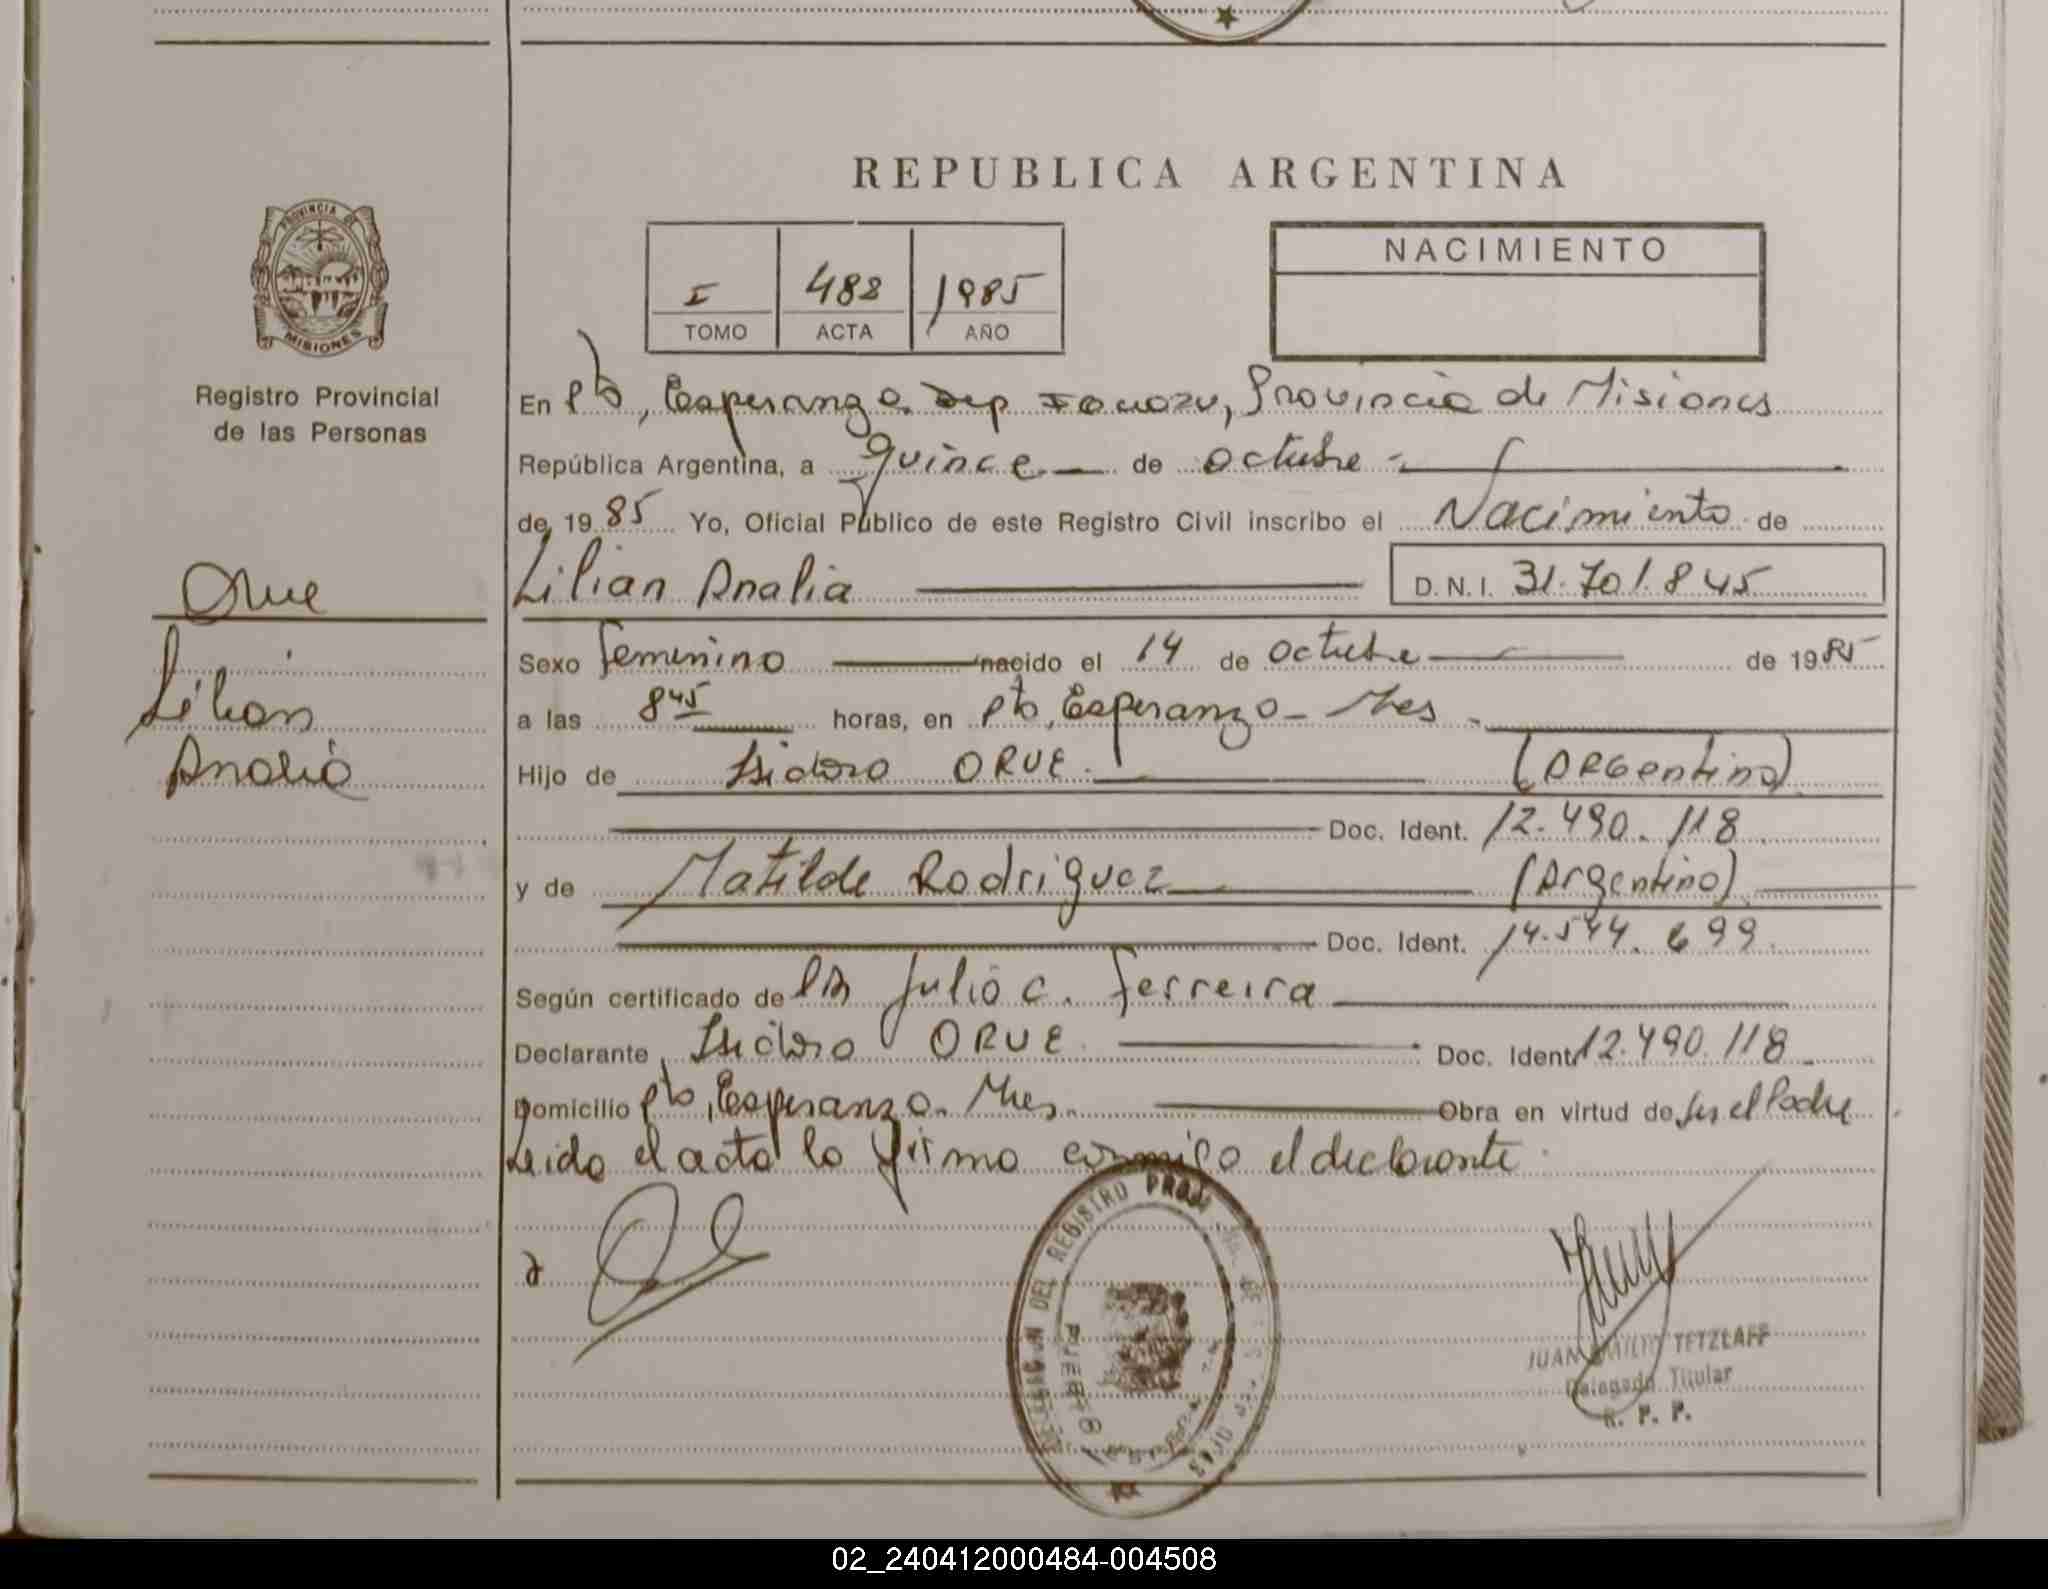 REPUBLICA ARGENTINA
PROVINCIA DE
MISIONES
Registro Provincial
de las Personas
I 488 1985
TOMO ACTA AÑO
NACIMIENTO
En Pto, Esperanza Dep Iguazu, Provincia de Misiones
República Argentina, a quince de octubre
de 1985 Yo, Oficial Público de este Registro Civil inscribo el Nacimiento de
Orue
Lilian Analia
D.N.I. 31.701.845
Lilian
Analia
Sexo femenino nacido el 14 de octubre de 1985
a las 8 45 horas, en Pto, Esperanza - Mnes
Hijo de Isidoro ORUE (ARGentino)
Doc. Ident. 12.490.118
y de Matilde Rodriguez (Argentino)
Doc. Ident. 14.544.699
Según certificado de Julio C. Ferreira
Declarante Isidoro ORUE Doc. Ident 12.490.118
Domicilio Pto, Esperanza. Mnes. Obra en virtud de ser el Padre
Leido el acta lo firma conmigo el declarante.
DELEGACION DEL REGISTRO PROV. DE LAS
JUAN EMILIO TETZLAFF
Delegado Titular
R. P. P.
02_240412000484-004508